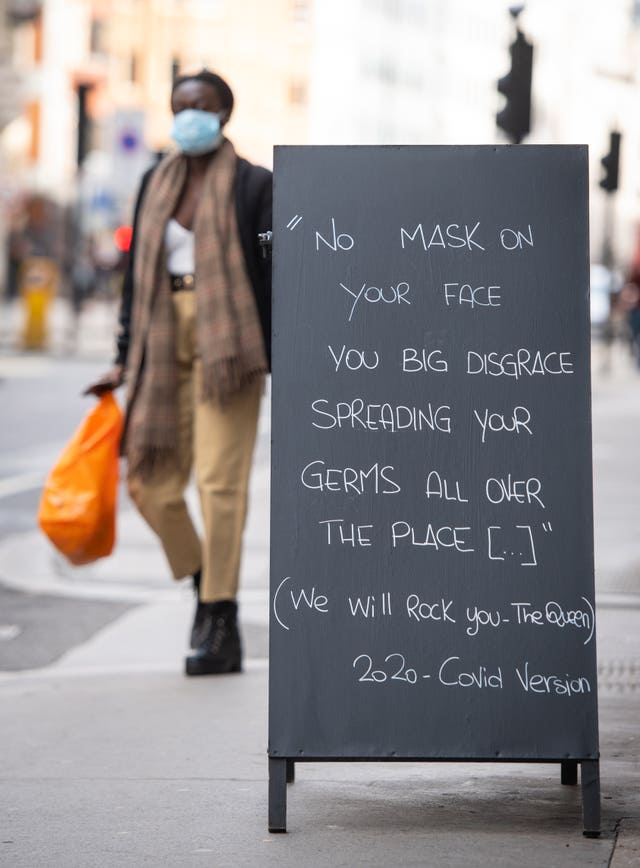 "No MASK ON
YOUR FACE
YOU BIG DISGRACE
SPREADING YOUR
GERMS ALL OVER
THE PLACE [...]"
(We Will Rock you - The Queen)
2020 - Covid Version